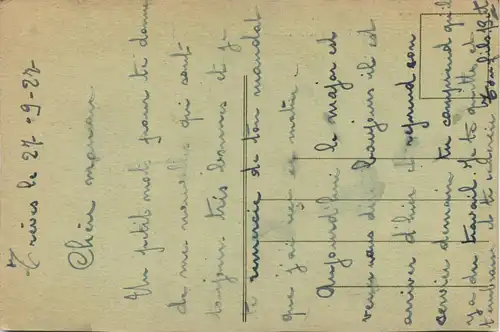 Trèves le 27-9-27
Chère maman
Un petit mot pour te donner
de mes nouvelles qui sont
toujours très bonnes et je
te remercie de ton mandat
que j'ai reçu ce matin
Aujourd'hui le major est
revenu de il est
arriver d'hier et reprend son
service demain tu comprend qu'il
y a du travail. Je te quitte et
t'embrasse
Ton fils